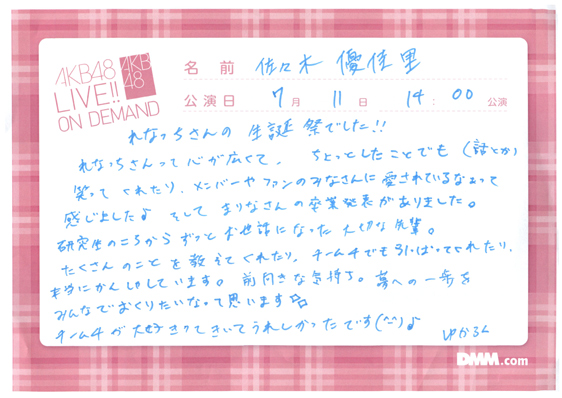 AKB48
LIVE!!
ON DEMAND
AKB
48
名前 佐々木 優佳里
公演日 7月 11日 14:00 公演
れなっちさんの 生誕祭でした!!
れなっちさんって心が広くて、ちょっとしたことでも(話とか)
笑ってくれたり、メンバーやファンのみなさんに愛されているなぁって
感じました♪ そして まりなさんの卒業発表がありました。
研究生のころからずっとお世話になった大切な先輩。
たくさんのことを教えてくれたり、チーム4でも引っぱってくれたり、
本当にかんしゃしています。前向きな気持ち。夢への一歩を
みんなでおくりたいなって思います☆
チーム4が大好きってきいてうれしかったです(^^)♪
ゆかるん
DMM.com